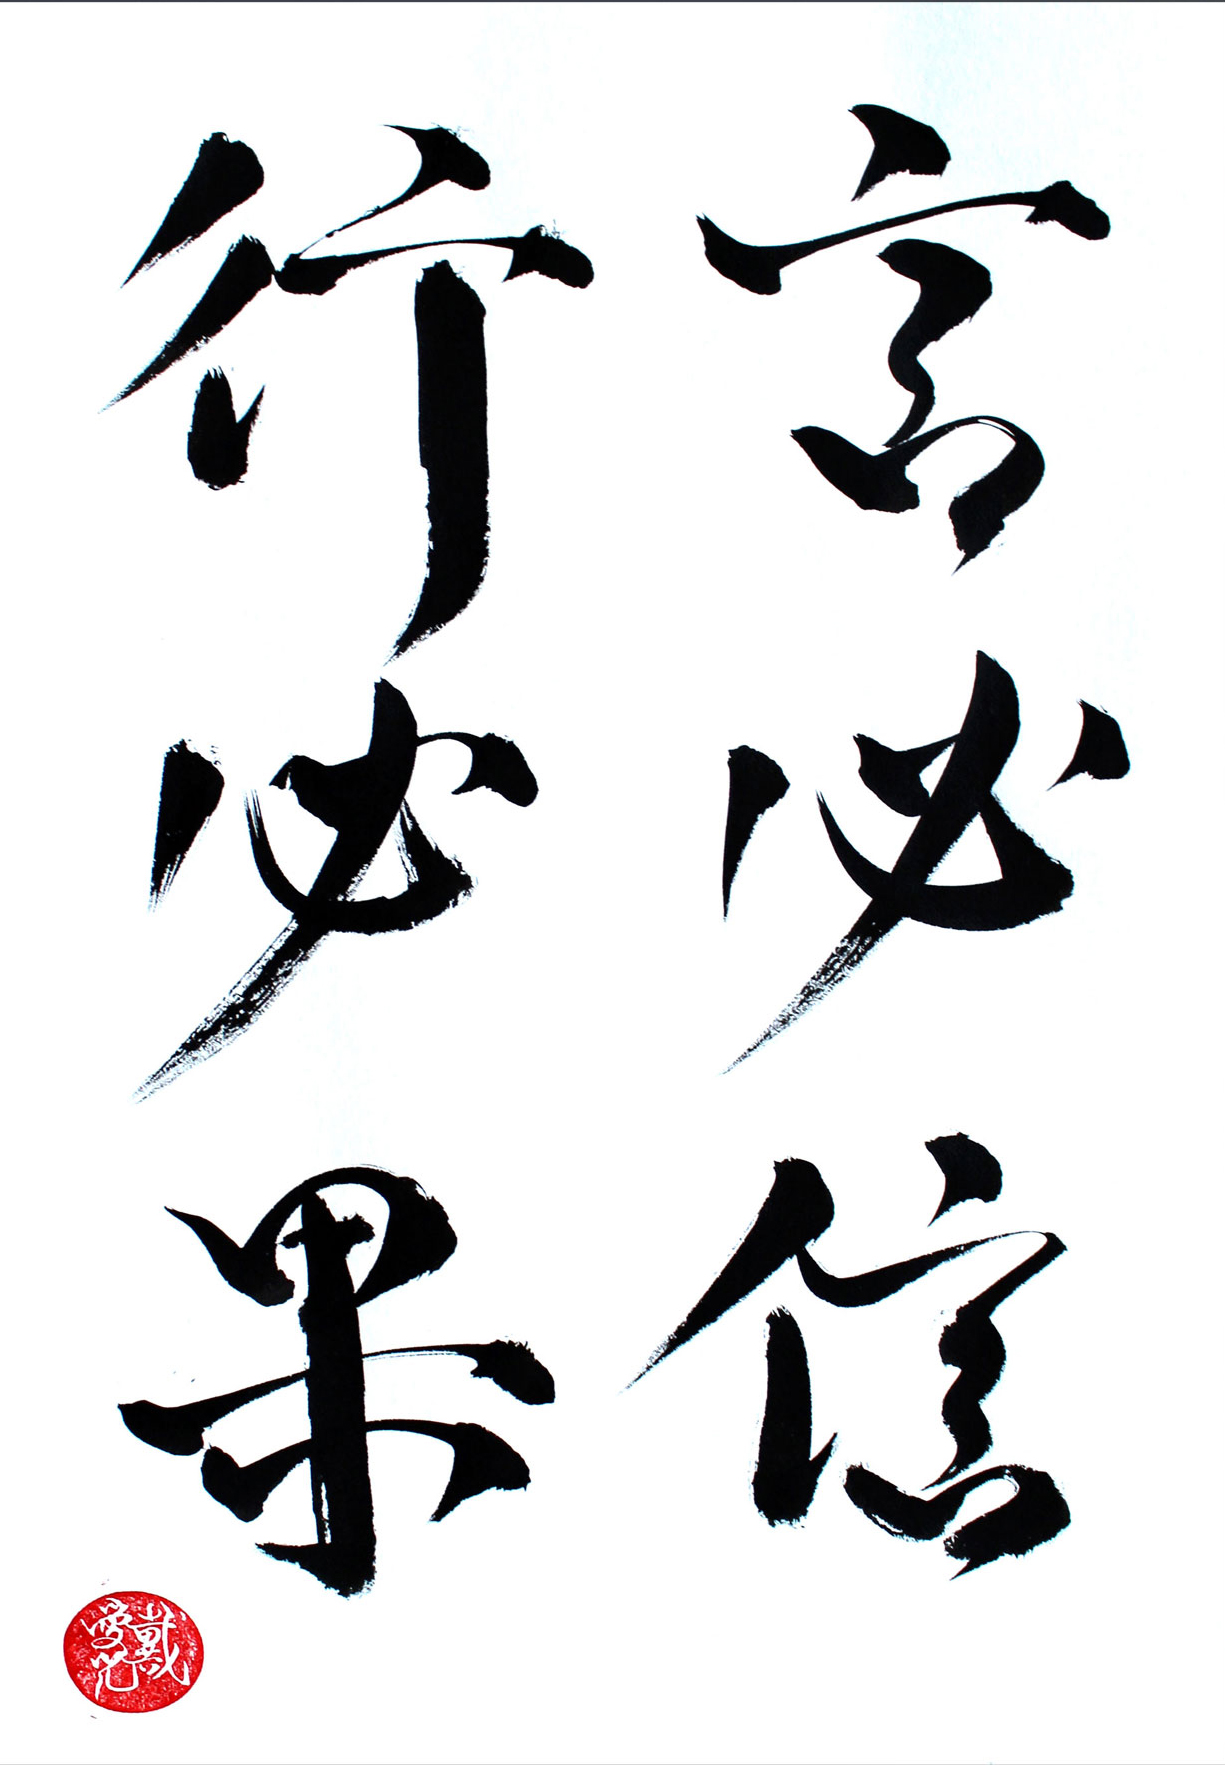 言必信
行必果